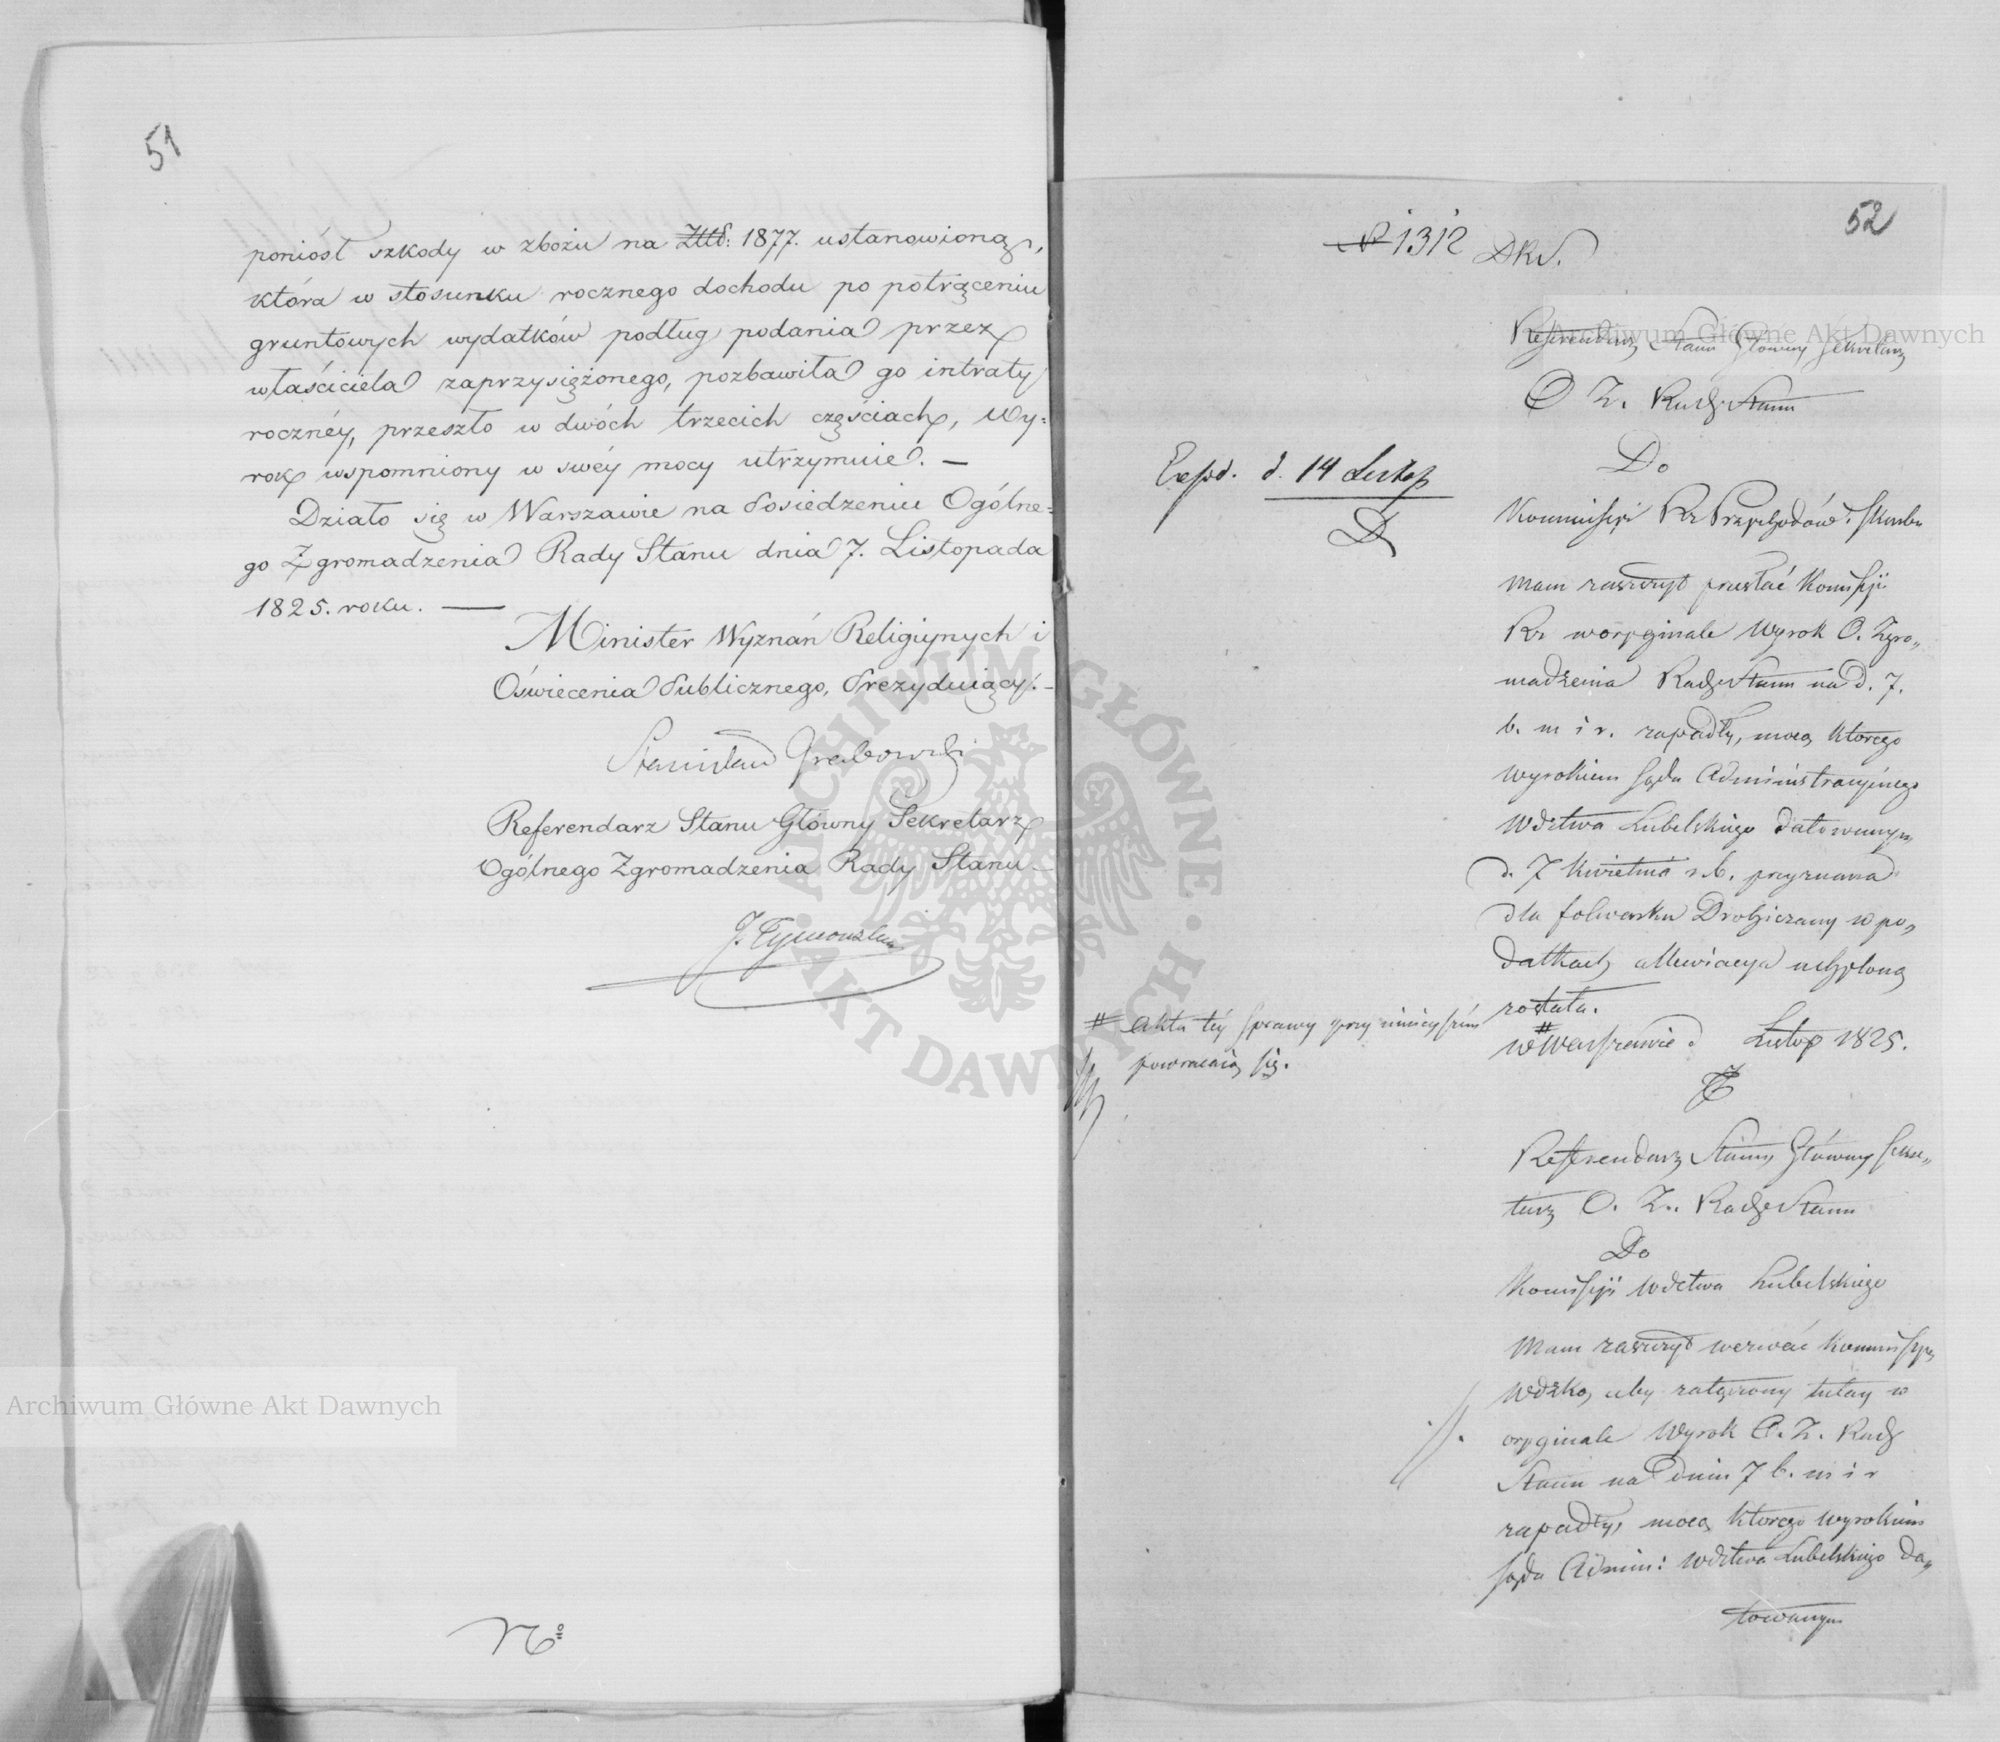 51
poniósł szkody w zbożu na Złtd: 1877. ustanowioną,
która w stosunku rocznego dochodu po potrąceniu
gruntowych wydatków podług podania przez
właściciela zaprzysiężonego, pozbawiła go intraty
rocznéy, przeszło w dwóch trzecich częściach, Wy-
rok wspomniony w swéy mocy utrzymuie. —
Działo się w Warszawie na Posiedzeniu Ogólne-
go Zgromadzenia Rady Stanu dnia 7. Listopada
1825. roku. —
Minister Wyznań Religiynych i
Oświecenia Publicznego, Prezyduiący. -
Stanisław Grabowski
Referendarz Stanu Główny Sekretarz
Ogólnego Zgromadzenia Rady Stanu -
J. Tymowski
No
52
N 1312
Referendarz Stanu Główny Sekretarz
O Z. Rady Stanu
Do
Kommissyi Rz Przychodów i Skarbu
Exped. d. 14 Listop
D
Mam zaszczyt przesłać Komissji
Rz w oryginale Wyrok O. Zgro„
madzenia Rady Stanu na d. 7.
b. m i r. zapadły, mocą którego
wyrokiem Sądu Administracyjnego
Wdztwa Lubelskiego datowanym
d. 7 Kwietnia r. b. przyznana
dla folwarku Drohiczany w po„
datkach allewiacya uchyloną
została.
# Akta téy sprawy przy niniejszém
powracaią się.
#
w Warszawie d Listop 1825.
Referendarz Stanu Główny Sekre„
tarz O. Z. Rady Stanu
Do
Komissyi Wdztwa Lubelskiego
Mam zaszczyt wezwać Kommissyą
Wdzką, aby załączony tutay w
oryginale Wyrok O. Z. Rady
Stanu na dniu 7 b. m i r
zapadły, mocą którego wyrokiem
Sądu Admin: Wdztwa Lubelskiego da„
towanym
Archiwum Główne Akt Dawnych
Archiwum Główne Akt Dawnych
ARCHIWUM GŁÓWNE · AKT DAWNYCH ·